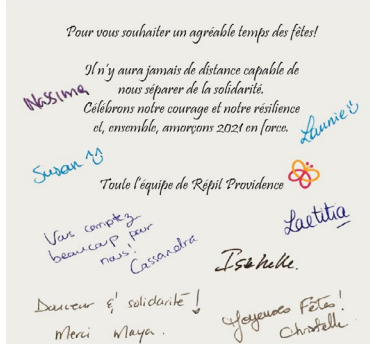 Pour vous souhaiter un agréable temps des fêtes!
Il n'y aura jamais de distance capable de
nous séparer de la solidarité.
Célébrons notre courage et notre résilience
et, ensemble, amorçons 2021 en force.
Nassima
Launie
Susan
Toute l'équipe de Répil Providence
Laetitia
Vous comptez
beaucoup pour
nous!
Cassandra
Isabelle.
Douceur & solidarité!
Merci Maya.
Joyeuses Fêtes!
Christelle